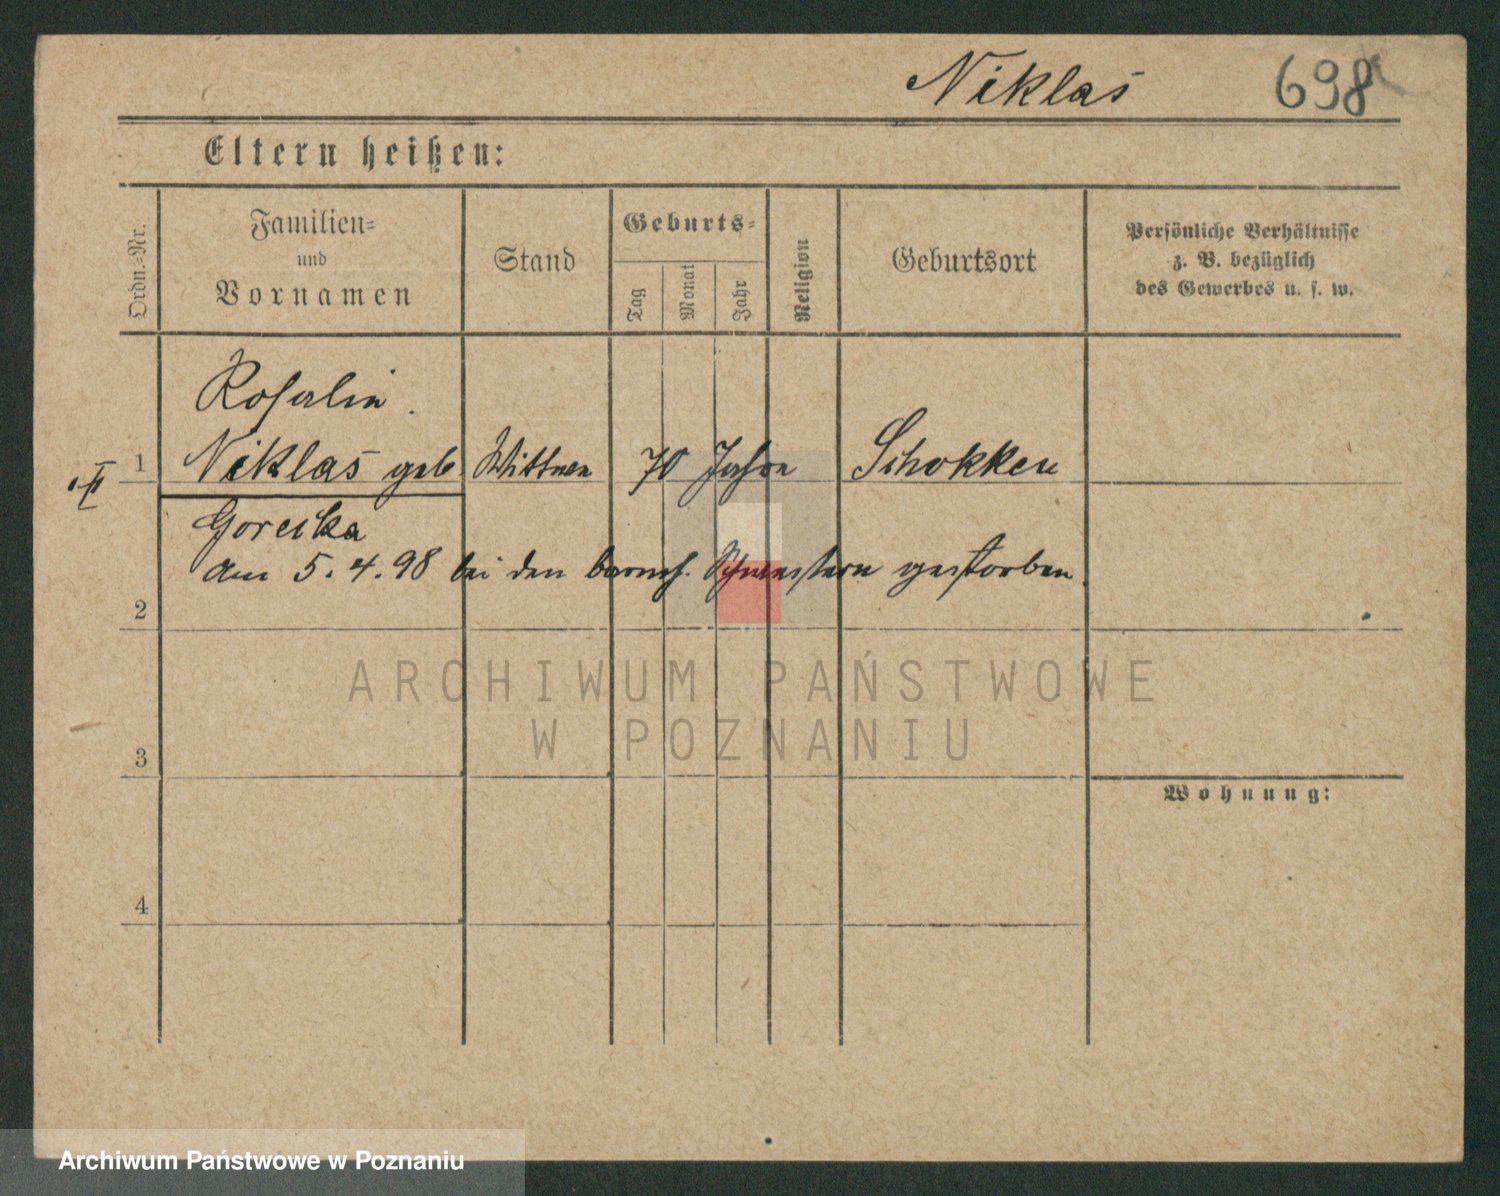 Niklas 698
Eltern heißen:
Ordn.-Nr.
Familien-
und
Vornamen
Stand
Geburts-
Tag
Monat
Jahr
Religion
Geburtsort
Persönliche Verhältnisse
z. B. bezüglich
des Gewerbes u. s. w.
Rosalie
1 Niklas geb Wittwe 70 Jahre Schokken
Goreska
am 5.4.98 bei den barmh. Schwestern gestorben
2
ARCHIWUM PAŃSTWOWE
W POZNANIU
3
Wohnung:
4
Archiwum Państwowe w Poznaniu